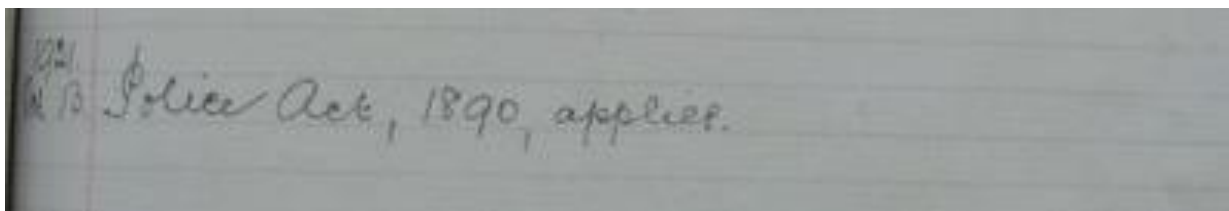 1921
Police Act, 1890, applies.